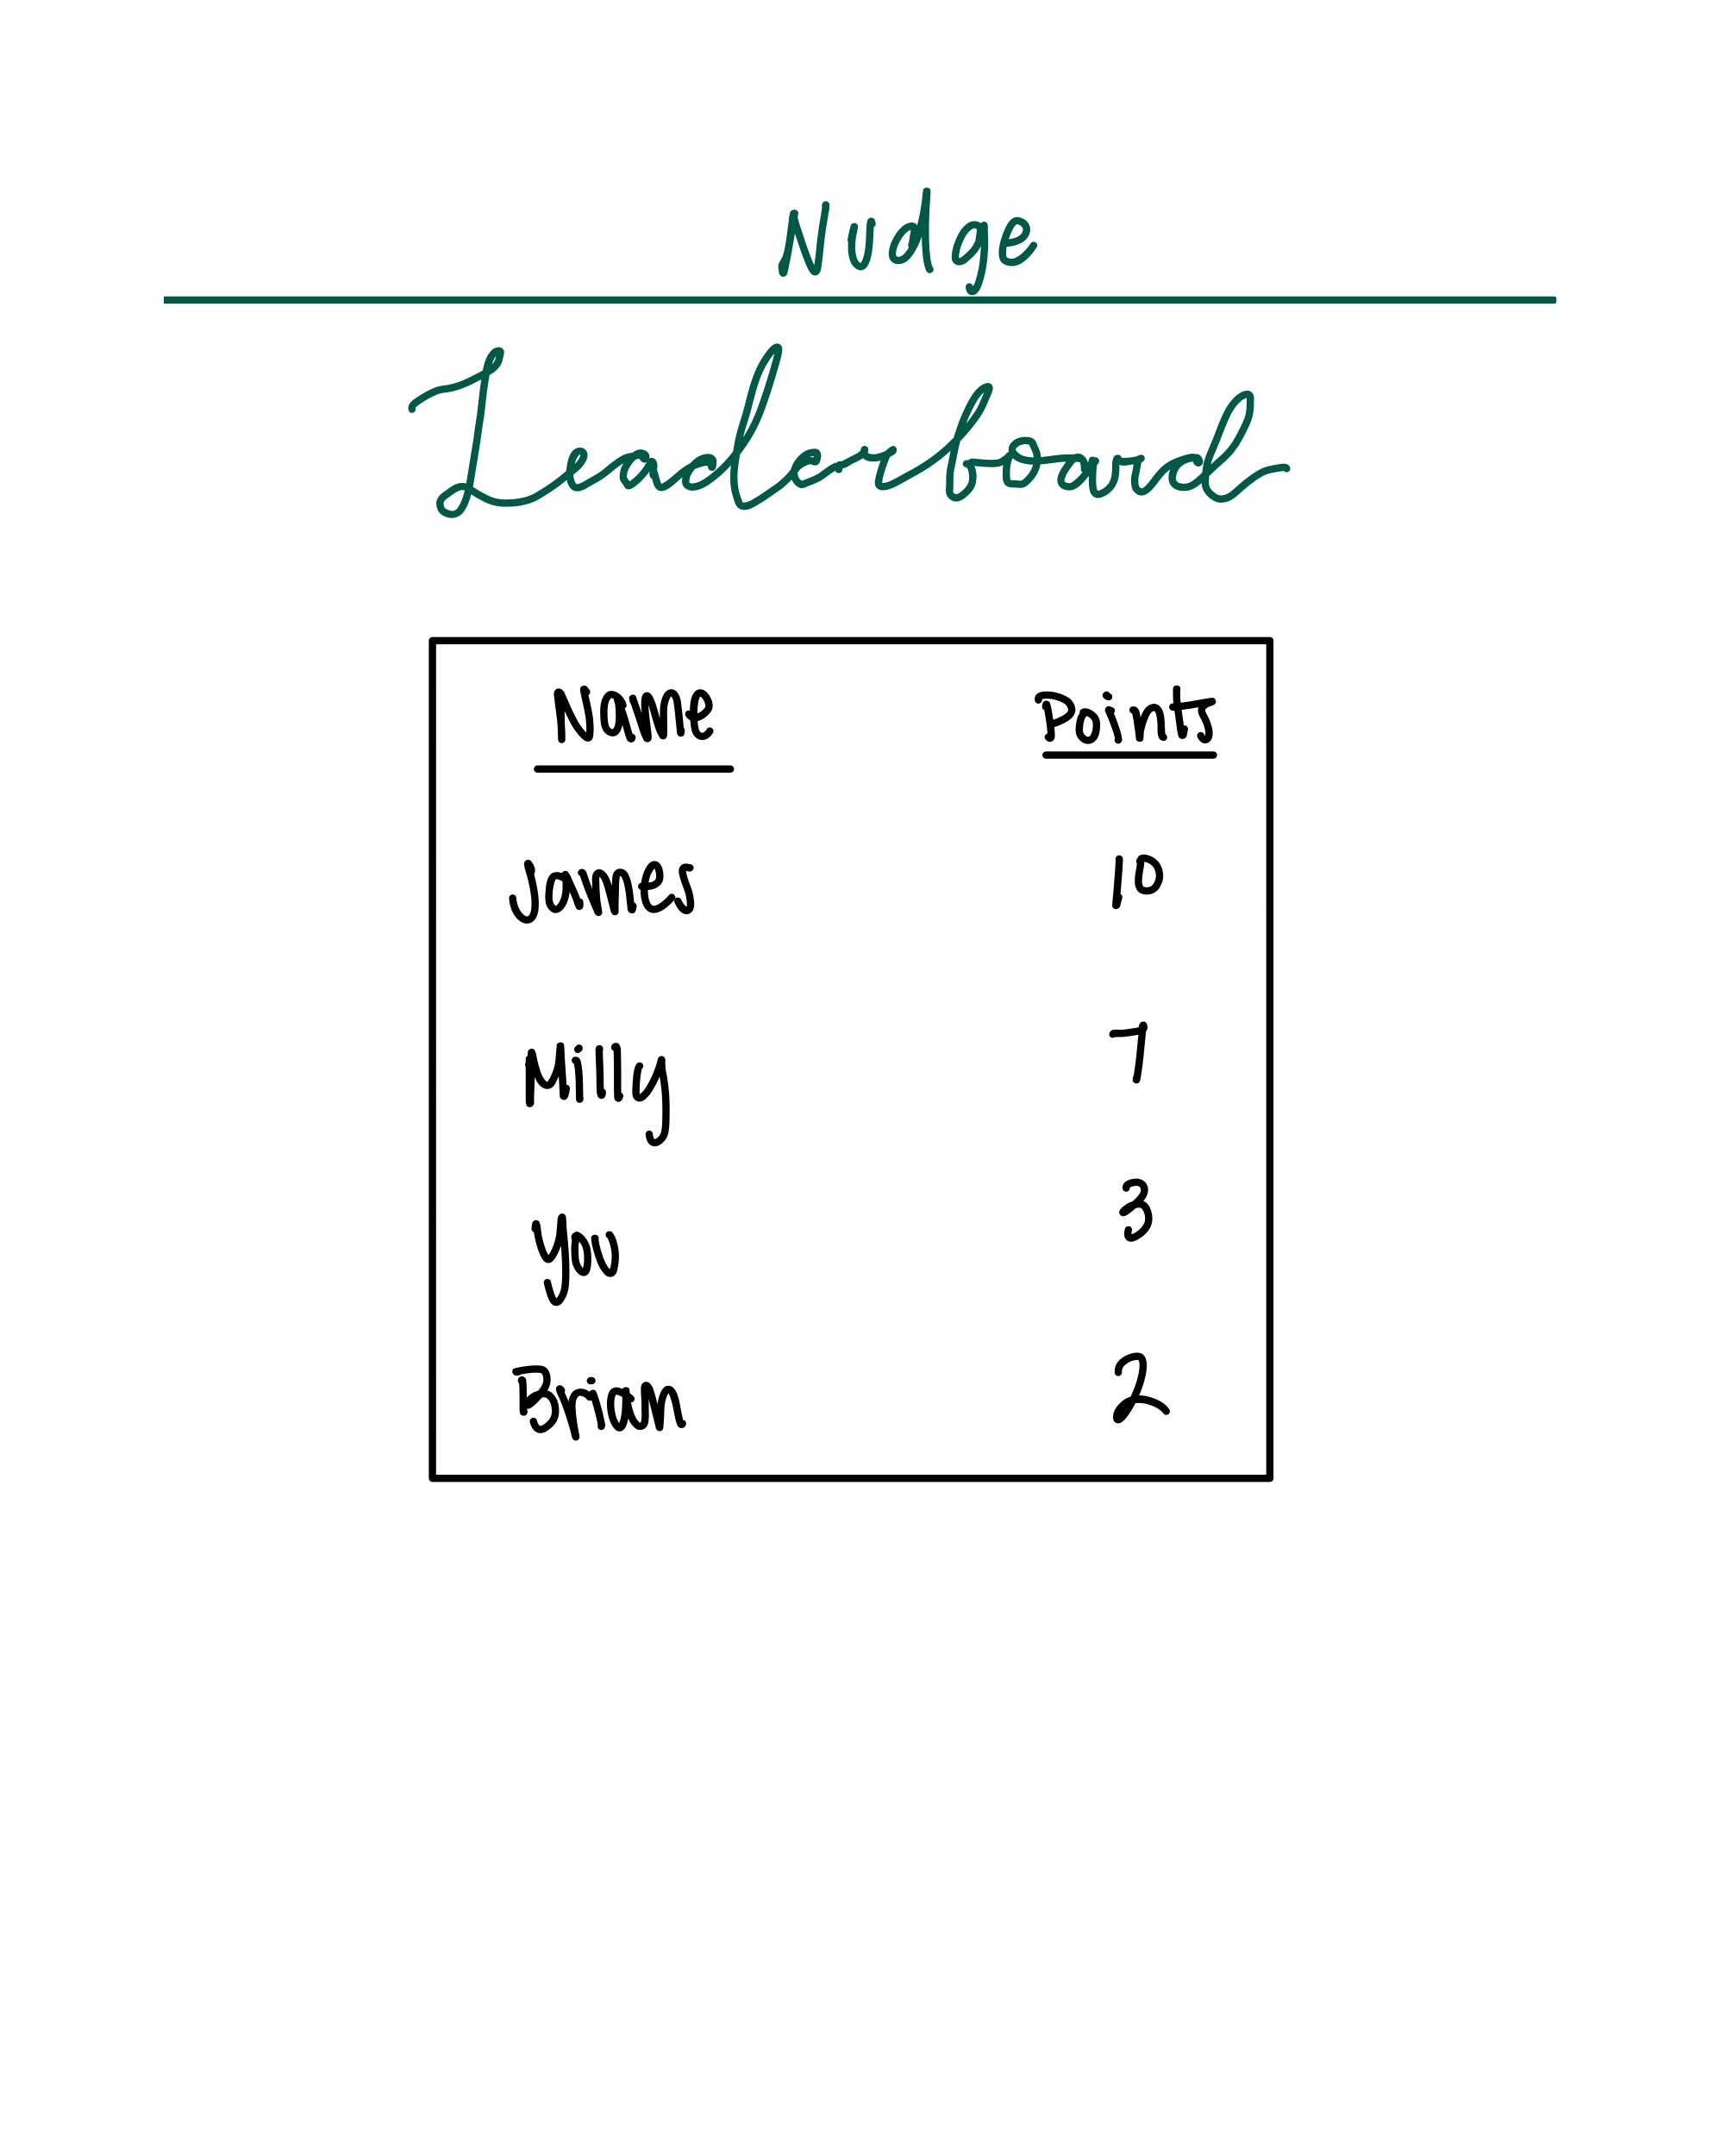 Nudge
Leaderboard
Name Points
James 10
Milly 7
You 3
Brian 2